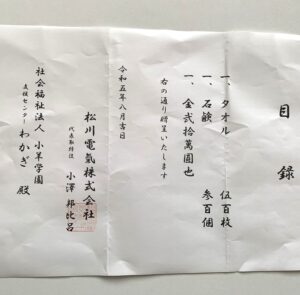 目録
一、タオル　伍百枚
一、石鹸　参百個
一、金弐拾萬圓也
右の通り贈呈いたします
令和五年八月吉日
松川電氣株式会社
代表取締役　小澤邦比呂
社会福祉法人　小羊学園
支援センターわかぎ　殿